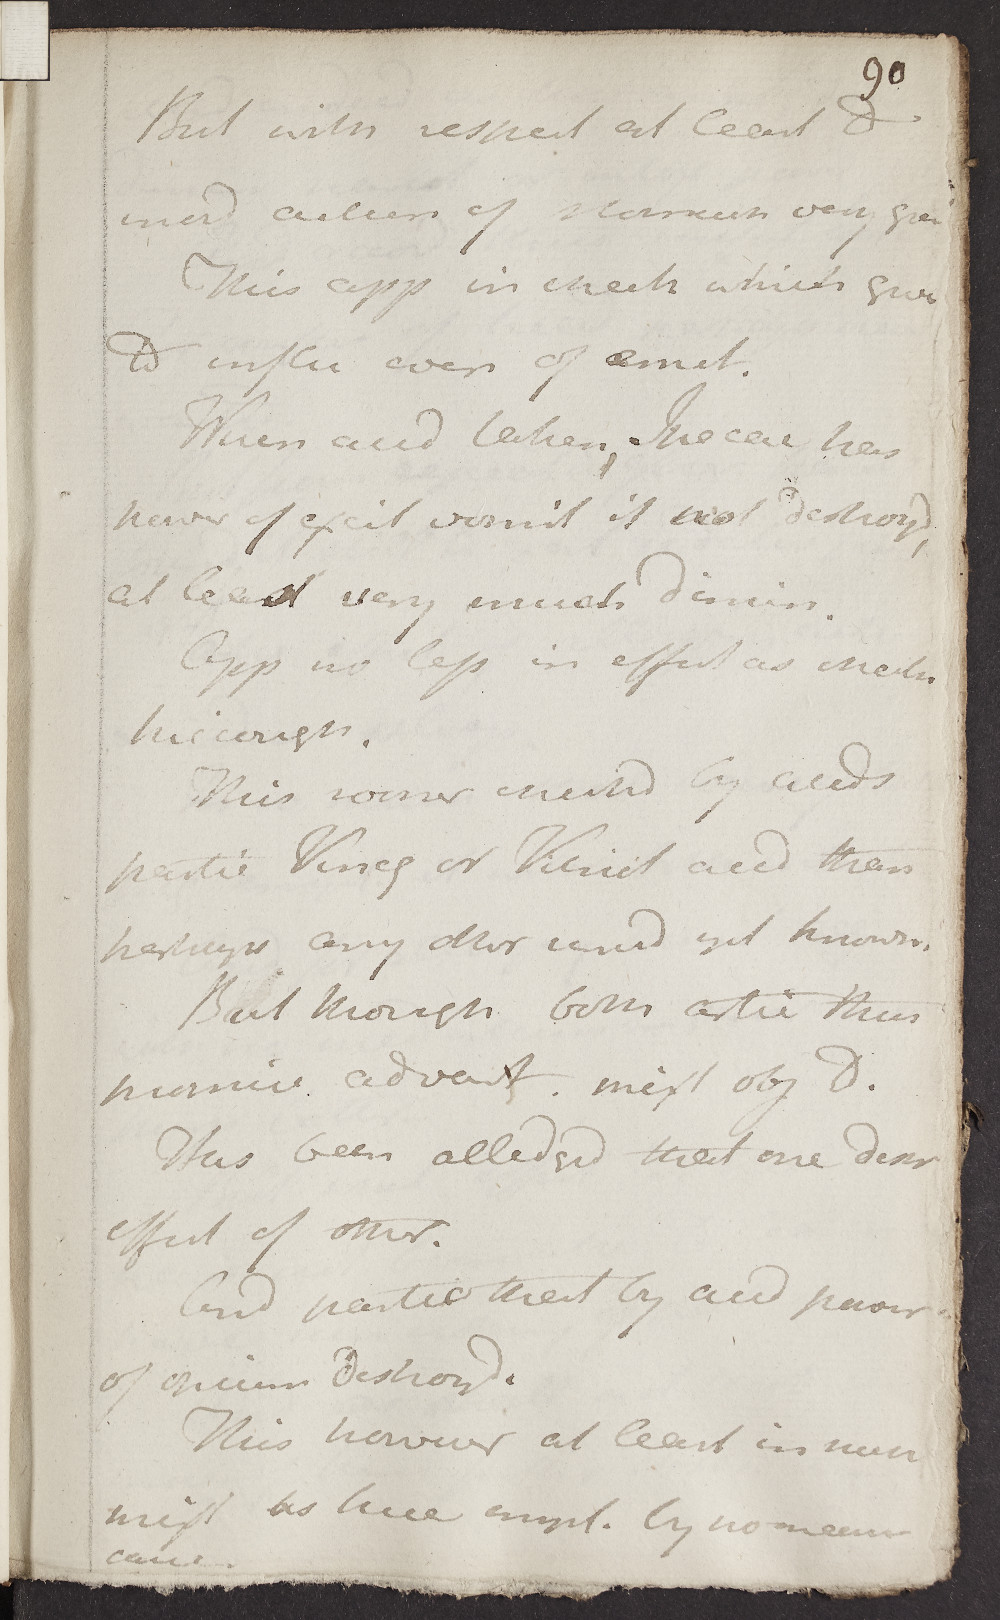 90
But with respect at least to
inord action of stomach very grea
This app in check which give
to influ even of emet.
When acid taken, Ipecac has
power of excit vomit if not destroyd,
at least very much dimin.
App no less in effect as check
hiccough.
This sooner checkd by acids
partic Vineg or Vitriol acid than
perhaps any other remd yet known.
But though both artic thus
promise advant. mixt obj to.
Has been alledged that one destr
effect of other.
And partic that by acid power
of opium destroyd.
This however at least in such
mixt as here empl. by no means
case.